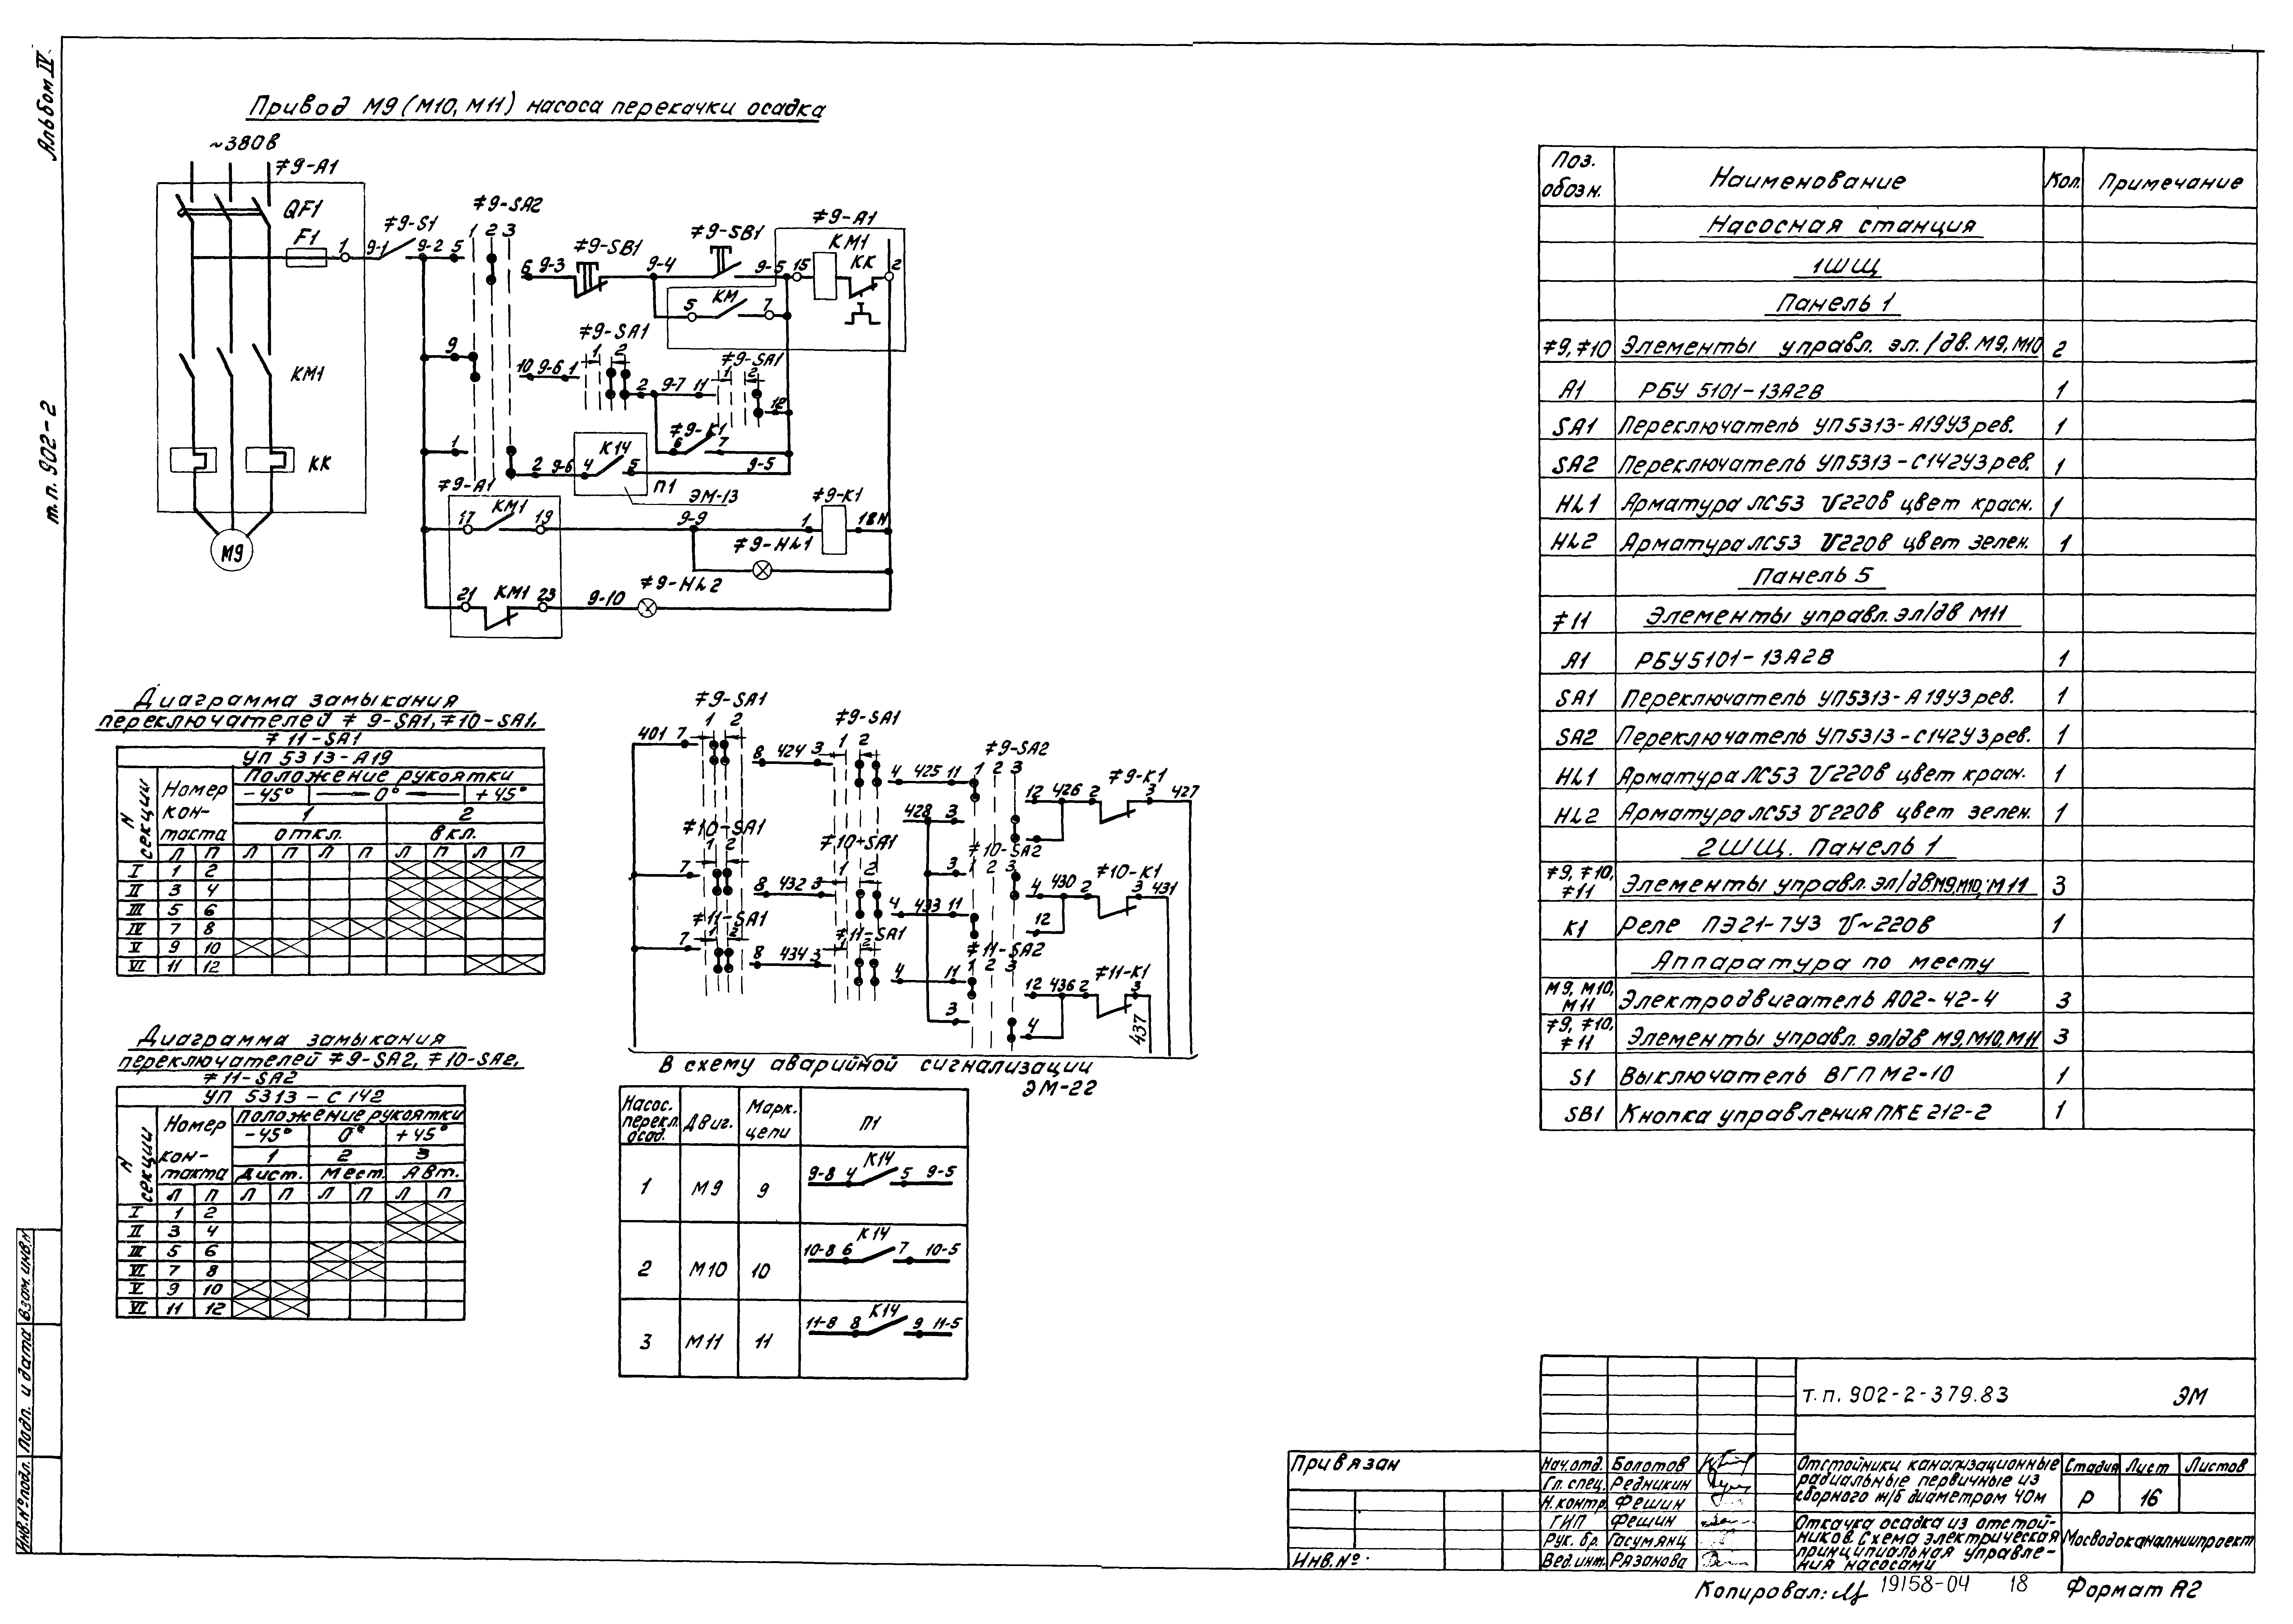 Альбом IV
т.п. 902-2
Привод М9 (М10, М11) насоса перекачки осадка
~380в
≠9-А1
QF1
F1
1
9-1
≠9-S1
9-2
5
≠9-SA2
1 2 3
6 9-3
≠9-SB1
9-4
≠9-SB1
9-5
15
≠9-А1
КМ1
КК
2
5
КМ
7
9
≠9-SA1
1 2
10 9-6 1
2 9-7 11
≠9-SA1
1 2
12
≠9-К1
6 7
КМ1
КК
М9
1
2 9-6 4
К14
5
9-5
П1
ЭМ-13
≠9-А1
17
КМ1
19
9-9
1
≠9-К1
18N
≠9-HL1
21
КМ1
23
9-10
≠9-HL2
Диаграмма замыкания
переключателей ≠9-SA1, ≠10-SA1,
≠11-SA1
УП 5313-А19
N секции
Номер контакта
Положение рукоятки
-45° 0° +45°
1 2
откл. вкл.
Л П Л П Л П Л П Л П
I 1 2
II 3 4
III 5 6
IV 7 8
V 9 10
VI 11 12
Диаграмма замыкания
переключателей ≠9-SA2, ≠10-SA2,
≠11-SA2
УП 5313-С142
N секции
Номер контакта
Положение рукоятки
-45° 0° +45°
1 2 3
Дист. Мест. Авт.
Л П Л П Л П Л П
I 1 2
II 3 4
III 5 6
VI 7 8
V 9 10
VI 11 12
≠9-SA1
1 2
401 7
8 424 3
≠9-SA1
1 2
4 425 11
≠9-SA2
1 2 3
12 426 2
≠9-К1
3 427
428 3
4
≠10-SA1
1 2
7
8 432 3
≠10-SA1
1 2
4 433 11
≠10-SA2
3 1 2 3
4 430 2
≠10-К1
3 431
12
≠11-SA1
1 2
7
8 434 3
≠11-SA1
1 2
4 11
≠11-SA2
1 2 3
12 436 2
≠11-К1
3
437
3
4
В схему аварийной сигнализации
ЭМ-22
Насос. перекл. осад. Двиг. Марк. цепи П1
1 М9 9 9-8 4 К14 5 9-5
2 М10 10 10-8 6 К14 7 10-5
3 М11 11 11-8 8 К14 9 11-5
Поз. обозн. Наименование Кол. Примечание
Насосная станция
1ШЩ
Панель 1
≠9, ≠10 Элементы управл. эл./дв. М9, М10 2
А1 РБУ 5101-13А2В 1
SA1 Переключатель УП5313-А19У3 рев. 1
SA2 Переключатель УП5313-С142У3 рев. 1
HL1 Арматура ЛС53 U220в цвет красн. 1
HL2 Арматура ЛС53 U220в цвет зелен. 1
Панель 5
≠11 Элементы управл. эл/дв М11
А1 РБУ5101-13А2В 1
SA1 Переключатель УП5313-А19У3 рев. 1
SA2 Переключатель УП5313-С142У3 рев. 1
HL1 Арматура ЛС53 U220в цвет красн. 1
HL2 Арматура ЛС53 U220в цвет зелен. 1
2ШЩ. Панель 1
≠9, ≠10, ≠11 Элементы управл. эл/дв М9, М10, М11 3
К1 Реле ПЭ21-7У3 U~220в 1
Аппаратура по месту
М9, М10, М11 Электродвигатель А02-42-4 3
≠9, ≠10, ≠11 Элементы управл. эл/дв М9, М10, М11 3
S1 Выключатель ВГПМ2-10 1
SB1 Кнопка управления ПКЕ 212-2 1
т.п. 902-2-379.83 ЭМ
Привязан
Инв.№
Нач.отд. Болотов
Гл. спец. Редникин
Н.контр. Фешин
ГИП Фешин
Рук. бр. Гасумянц
Вед.инж. Рязанова
Отстойники канализационные
радиальные первичные из
сборного ж/б диаметром 40м
Стадия Лист Листов
Р 16
Откачка осадка из отстой-
ников. Схема электрическая
принципиальная управле-
ния насосами
Мосводоканалниипроект
Копировал:
19158-04 18
Формат А2
Инв.№подл. Подп. и дата Взам. инв.№